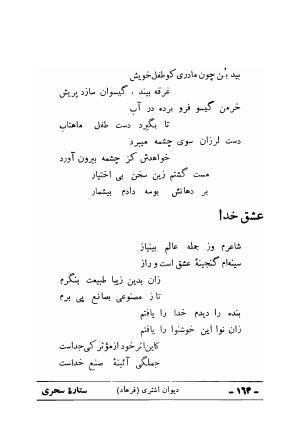 بید بُن چون مادری کو طفل خویش
غرقه بیند ، گیسوان سازد پریش
خرمن گیسو فرو برده در آب
تا بگیرد دست طفل ماهتاب
دست لرزان سوی چشمه میبرد
خواهدش کز چشمه بیرون آورد
مست گشتم زین سخن بی اختیار
بر دهانش بوسه دادم بیشمار
عشق خدا
شاعرم وز جمله عالم بینیاز
سینه‌ام گنجینهٔ عشق است و راز
زان بدین زیبا طبیعت بنگرم
تا ز مصنوعی بصانع پی برم
بنده را دیدم خدا را یافتم
زان نوا این خوشنوا را یافتم
کاین اثر خود از مؤثر کی جداست
جملگی آئینهٔ صنع خداست
ستارهٔ سحری دیوان اشتری (فرهاد) - ۱۶۴ -